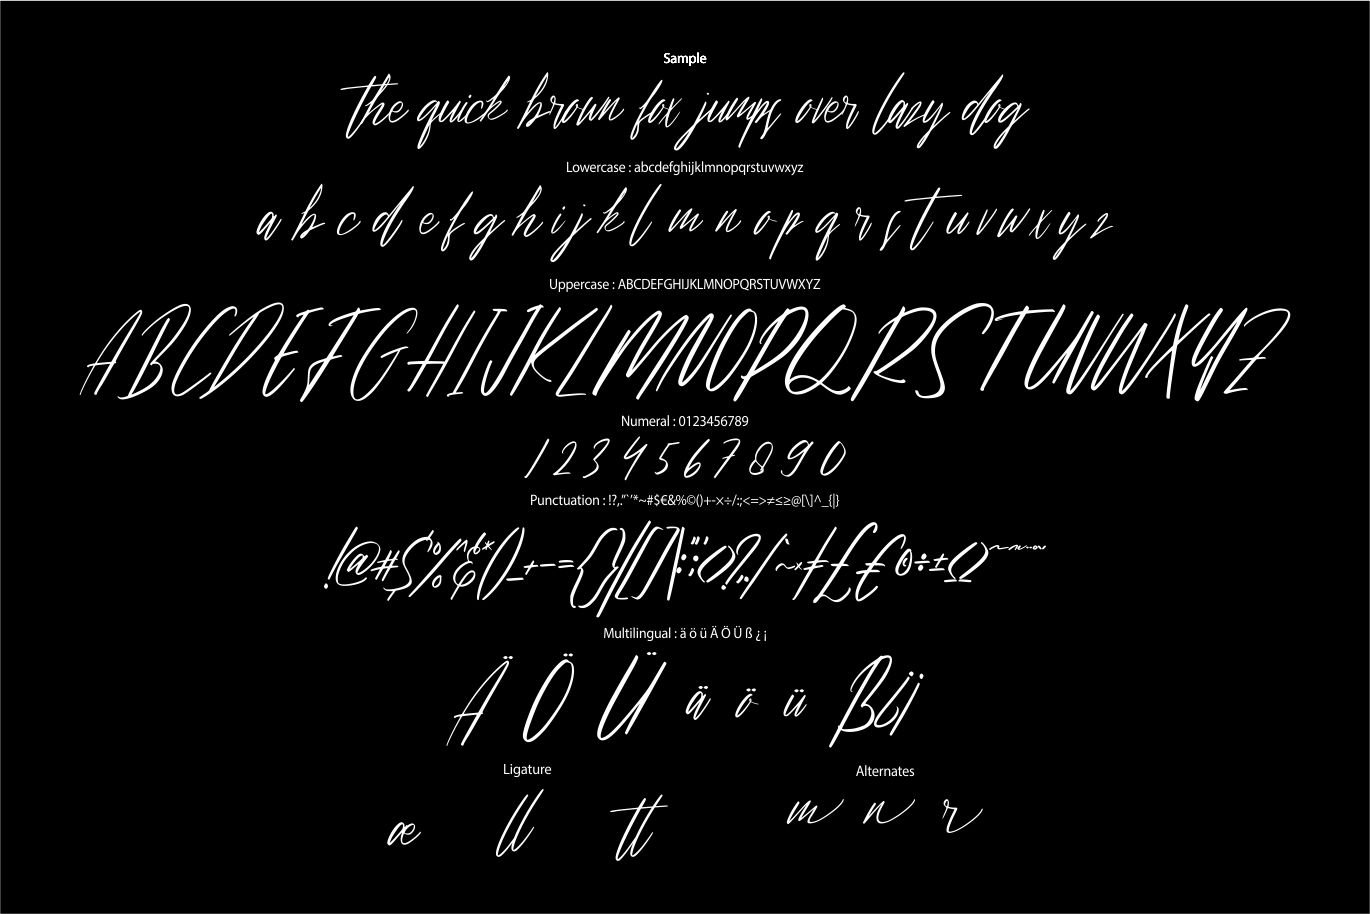 Sample
the quick brown fox jumps over lazy dog
Lowercase : abcdefghijklmnopqrstuvwxyz
a b c d e f g h i j k l m n o p q r s t u v w x y z
Uppercase : ABCDEFGHIJKLMNOPQRSTUVWXYZ
ABCDEFGHIJKLMNOPQRSTUVWXYZ
Numeral : 0123456789
1 2 3 4 5 6 7 8 9 0
Punctuation : !?,."`'*~#$€&%©()+-×÷/:;<=>≠≤≥@[\]^_{|}
!@#$%^&*()_+-={}|[]\:";'<>?,./`~×≠-£€©÷±Ω
Multilingual : ä ö ü Ä Ö Ü ß ¿ ¡
Ä Ö Ü ä ö ü ß¿¡
Ligature Alternates
æ ll tt m n r